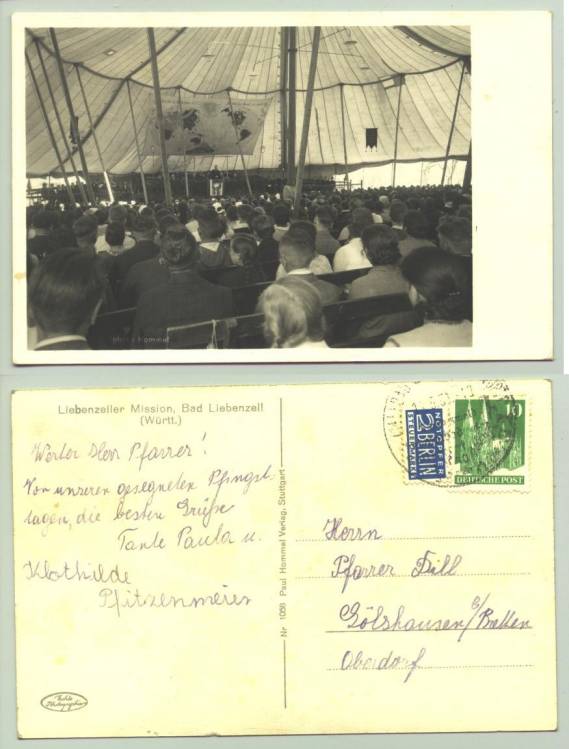 Photo Hommel
Liebenzeller Mission, Bad Liebenzell
(Württ.)
Werter Herr Pfarrer!
Von unseren gesegneten Pfingst-
tagen, die besten Grüße
Tante Paula u.
Klothilde
Pfitzenmeier
Nr. 1098 Paul Hommel Verlag, Stuttgart
NOTOPFER
2 BERLIN
STEUERMARKE
10
DEUTSCHE POST
Herrn
Pfarrer Dill
Gölshausen e/Bretten
Oberdorf
Echte
Photographie